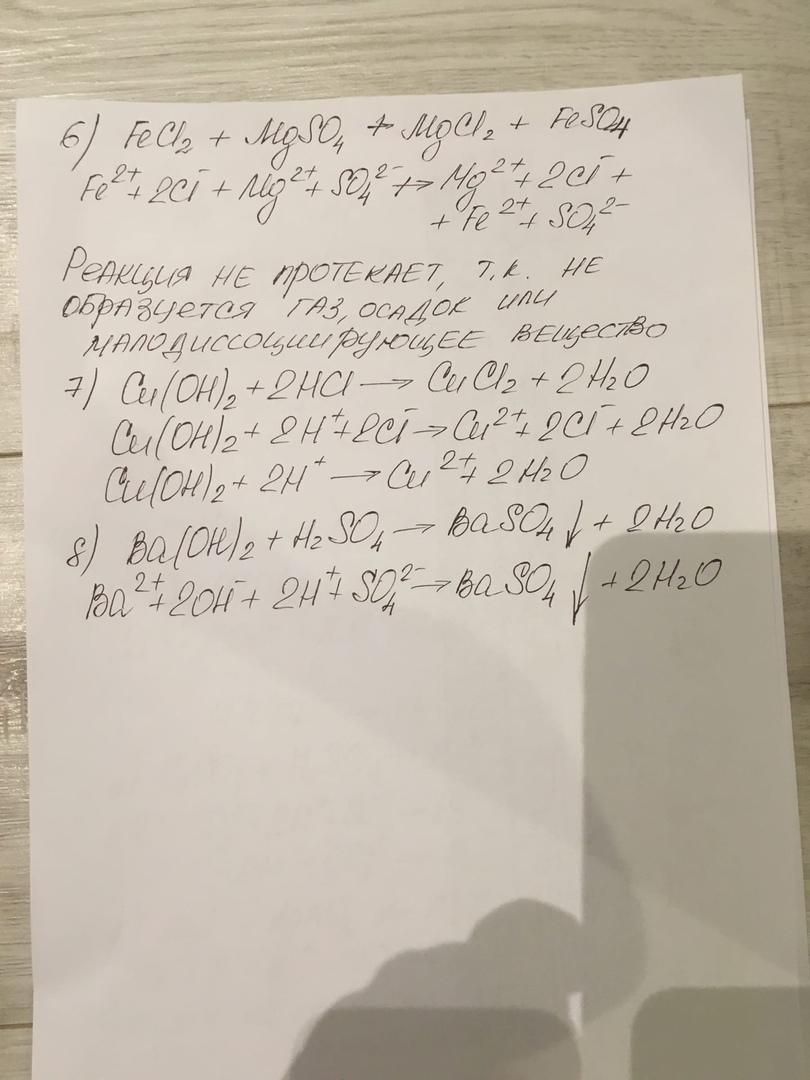 6) FeCl₂ + MgSO₄ ↛ MgCl₂ + FeSO₄
Fe²⁺ + 2Cl⁻ + Mg²⁺ + SO₄²⁻ ↛ Mg²⁺ + 2Cl⁻ +
+ Fe²⁺ + SO₄²⁻
РЕАКЦИЯ НЕ ПРОТЕКАЕТ, Т.К. НЕ
ОБРАЗУЕТСЯ ГАЗ, ОСАДОК ИЛИ
МАЛОДИССОЦИИРУЮЩЕЕ ВЕЩЕСТВО
7) Cu(OH)₂ + 2HCl → CuCl₂ + 2H₂O
Cu(OH)₂ + 2H⁺ + 2Cl⁻ → Cu²⁺ + 2Cl⁻ + 2H₂O
Cu(OH)₂ + 2H⁺ → Cu²⁺ + 2H₂O
8) Ba(OH)₂ + H₂SO₄ → BaSO₄↓ + 2H₂O
Ba²⁺ + 2OH⁻ + 2H⁺ + SO₄²⁻ → BaSO₄↓ + 2H₂O